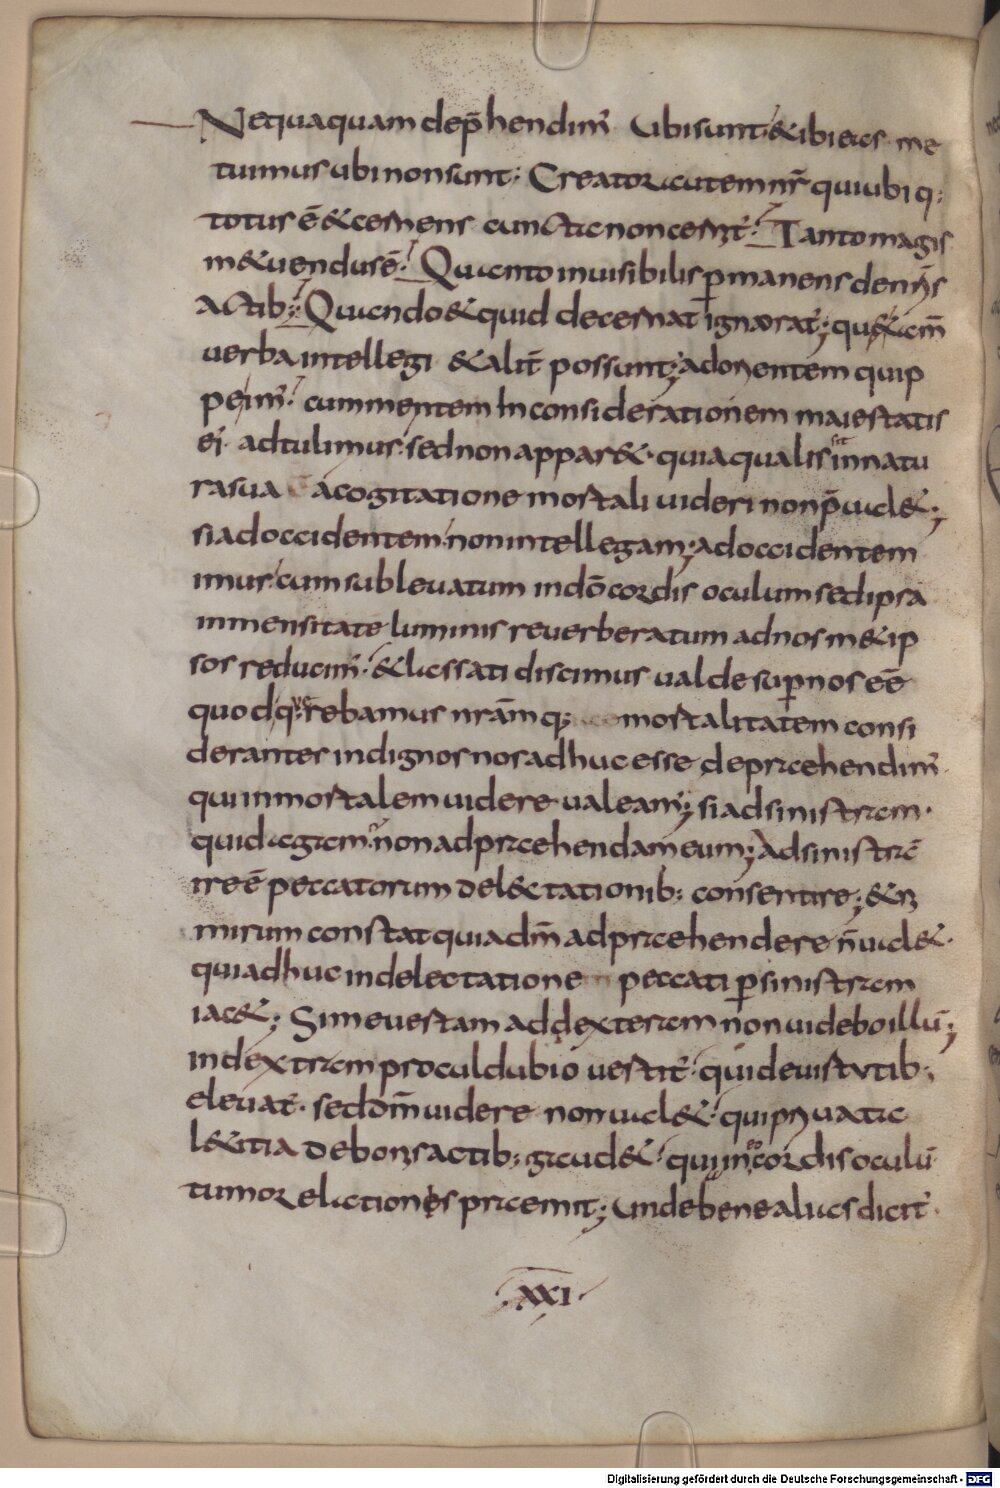 Nequaquam dep̄hendim̅ Ubi sunt & ibi eos me
tuimus ubi non sunt: Creator autem nr̄ qui ubi q:
totus ē & cernens cuncta non cernit̅: Tanto magis
m&uendus ē: Quanto inuisibilis ꝑmanens de nr̄is
actib: Quando & quid decernat ignorat̅; qu& iam
uerba intellegi & alit̄ possunt; ad orientem quip
pe im̅: cum mentem in consideration&em maiestatis
ei adtulimus: sed non appar&. quia qualis sit in natu
ra sua a cogitatione mortali uideri non p̄ual&;
si ad occidentem non intellegam; ad occidentem
imus: cum sub leuatum in dō cordis oculum sed ipsa
inmensitate luminis reuerberatum ad nos m&ip
sos reducim̅: & lassati discimus ualde suꝑ nos eē
quod querebamus nr̄amq; mortalitatem consi
derantes indignos nos adhuc esse depraehendim̅
qui inmortalem uidere ualeam̅; si ad sinistram
quid agam non adpraehendam eum; Ad sinistrā
ire ē peccatorum del&ctationib: consentire; & n
mirum constat quia dm̄ adpraehendere n̄ ual&
qui adhuc in delectatione peccati ꝑ sinistram
iac&; Si me uertam ad dexteram non uidebo illū;
in dextram procul dubio uertit̅ qui de uirtutib;
eleuat̅. sed dm̄ uidere non ual& qui priuata
l&itia de bonis actib: gaud& qui in eo cordis oculū
tumor elactionis praemit; Unde bene alias dicit̅
.XXI.
Digitalisierung gefördert durch die Deutsche Forschungsgemeinschaft - DFG